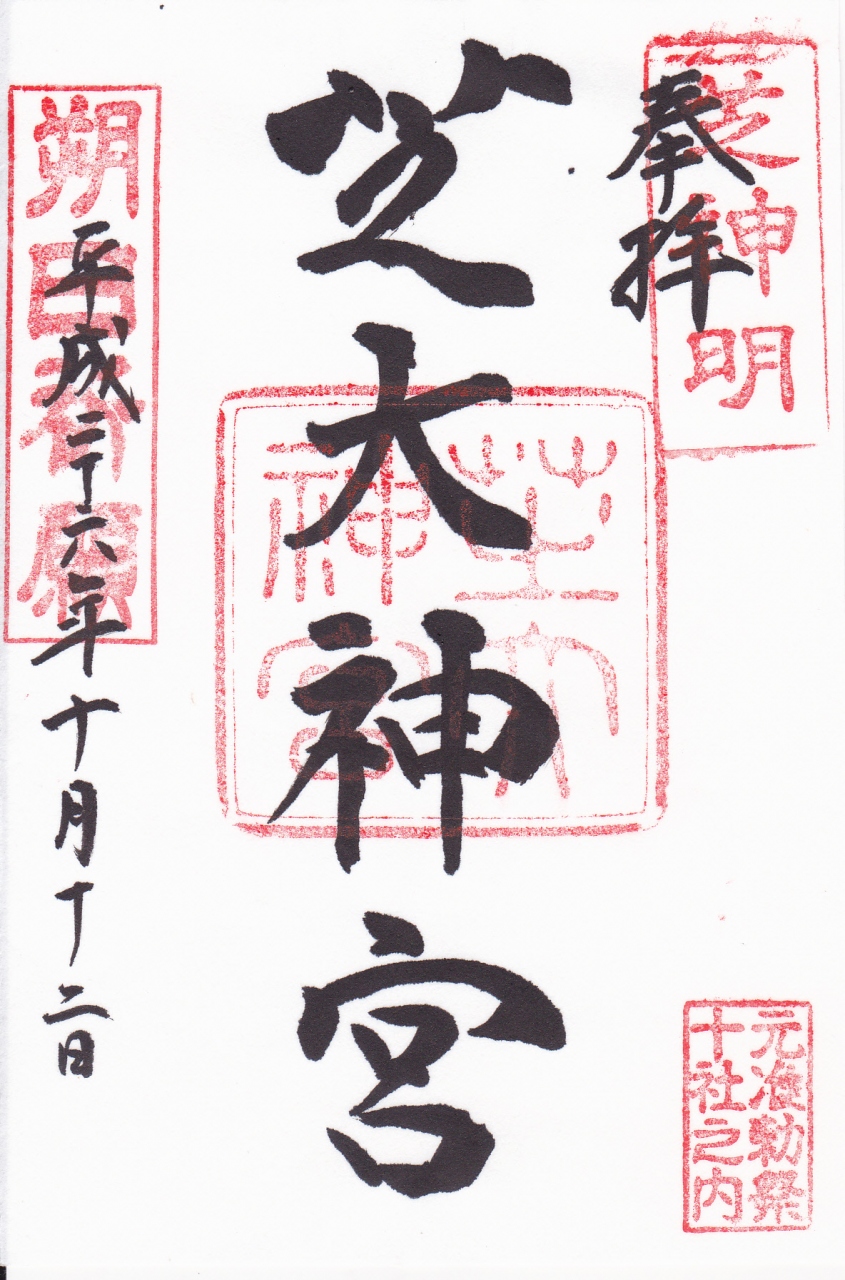 芝神明
奉拝
元准勅祭
十社之内
芝大神宮
芝大
神宮
朔日 願
平成二十六年十月十二日